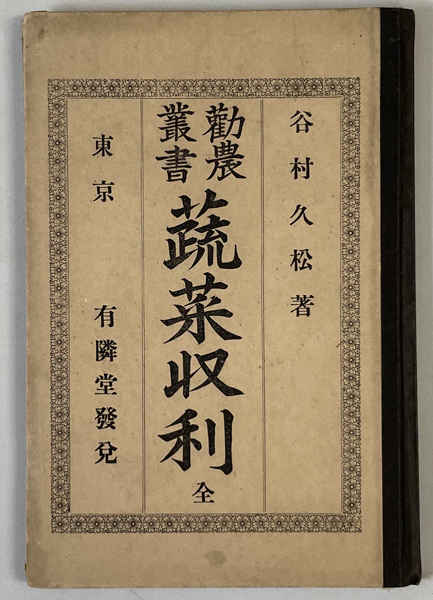 谷村久松著
勸農叢書
蔬菜収利 全
東京 有隣堂發兌